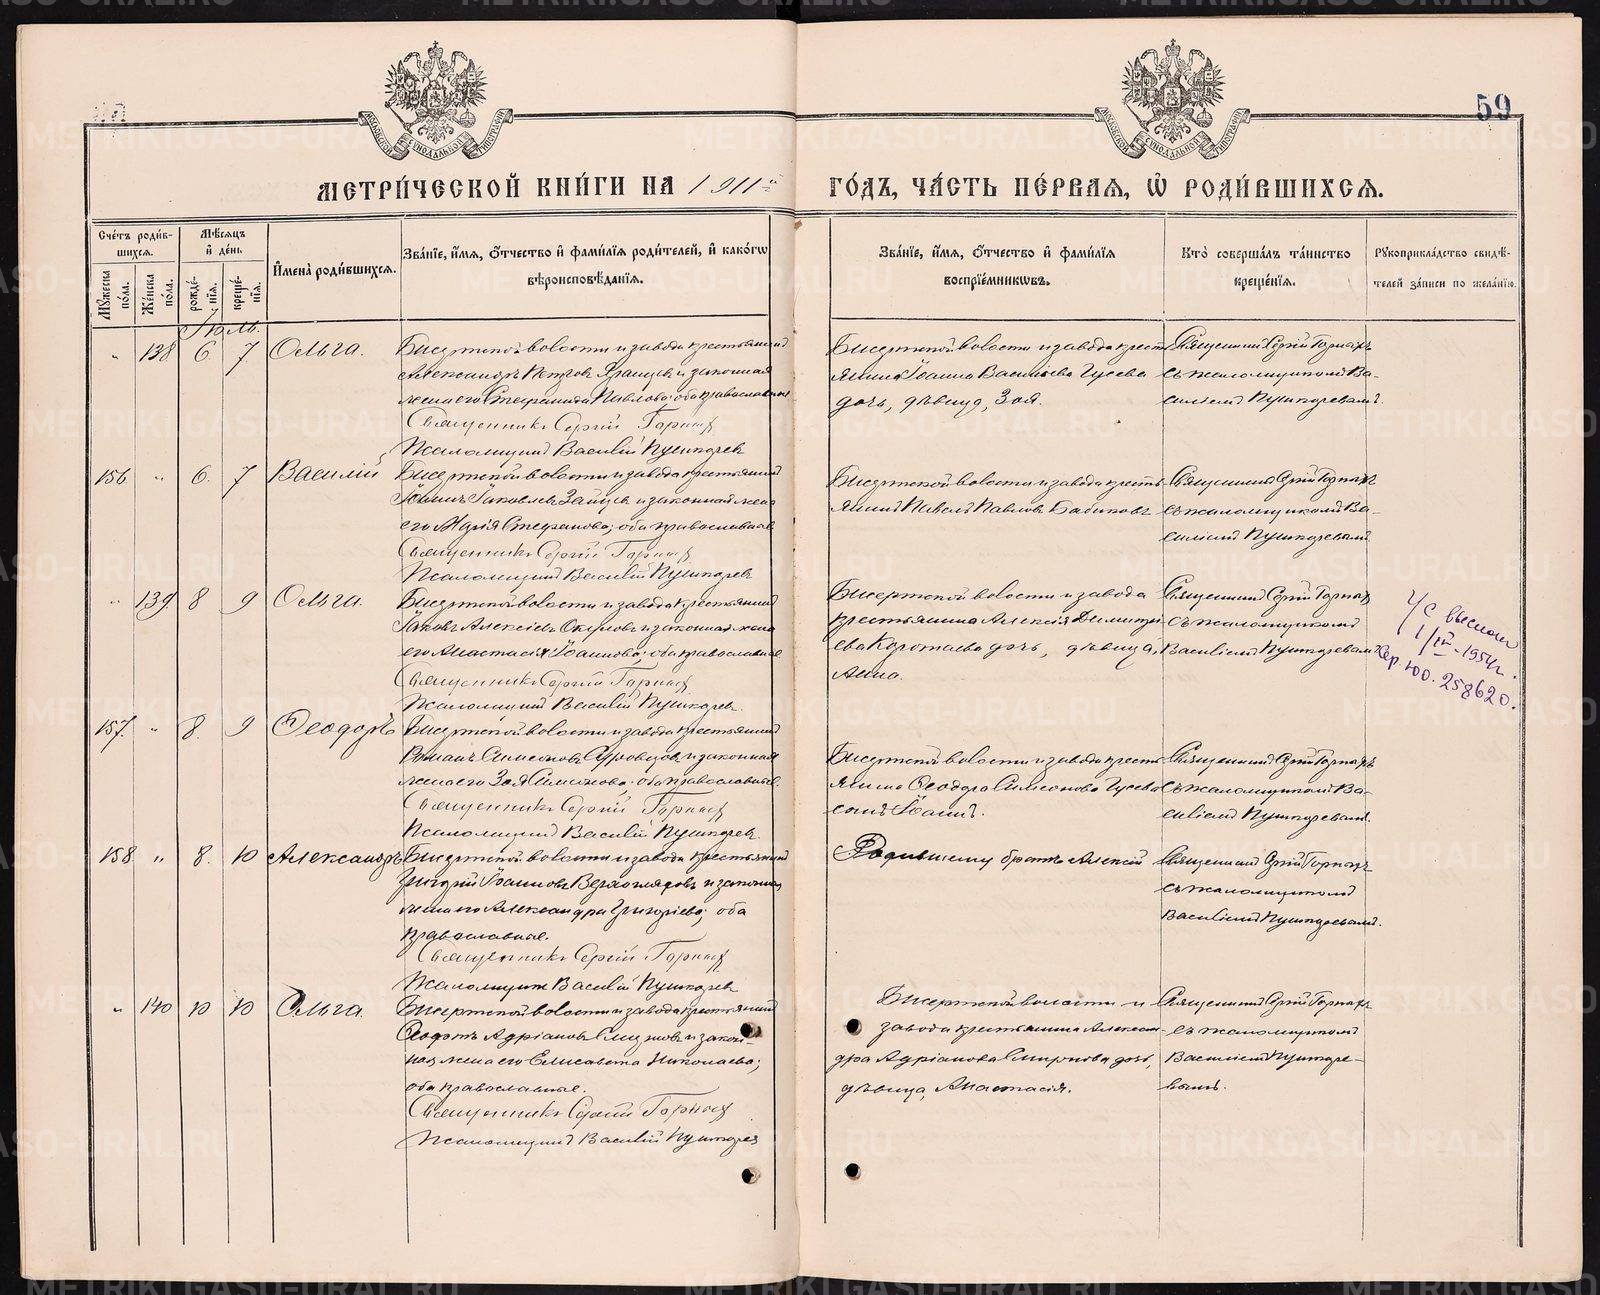 59
МЕТРИ́ЧЕСКОЙ КНИ́ГИ НА 1911й ГО́ДЪ, ЧА́СТЬ ПЕ́РВАѦ, Ѿ РОДИ́ВШИХСѦ.
Сче́тъ роди́в-
шихсѧ.
Мꙋжеска по́ла.
Же́нска по́ла.
Мѣ́сѧцъ и҆ де́нь
рожде́-нїѧ.
креще́-нїѧ.
И҆мена̀ роди́вшихсѧ.
Зва́нїе, и҆́мѧ, ѻ҆́тчество и҆ фами́лїѧ роди́телей, и҆ како́гѡ
вѣроисповѣ́данїѧ.
Зва́нїе, и҆́мѧ, ѻ҆́тчество и҆ фами́лїѧ
воспрїе́мникѡвъ.
Кто̀ соверша́лъ та́инство
креще́нїѧ.
Рꙋкоприкла́дство свидѣ́-
телей за́писи по жела́нїю.
Іюль.
" 138 6 7 Ольга.
Бисертской волости и завода крестьянинъ
Александръ Петровъ и законная
жена его Стефанида Павлова; оба православные
Священникъ Сергій Горныхъ
Псаломщикъ Василій Пушкаревъ
Бисертской волости и завода кресть-
янина Іоанна Васильева Гусева
дочь, дѣвица, Зоя.
Священникъ Сергій Горныхъ
съ псаломщикомъ Ва-
силіемъ Пушкаревымъ.
156 " 6. 7 Василій
Бисертской волости и завода крестьянинъ
Іоаннъ Іаковлевъ Зайцевъ и законная жена
его Марія Стефанова; оба православные
Священникъ Сергій Горныхъ
Псаломщикъ Василій Пушкаревъ
Бисертской волости и завода кресть-
янинъ Павелъ Павловъ Бабиновъ
Священникъ Сергій Горныхъ
съ псаломщикомъ Ва-
силіемъ Пушкаревымъ
" 139. 8 9 Ольга.
Бисертской волости и завода крестьянинъ
Іаковъ Алексіевъ Окуловъ и законная жена
его Анастасія Іоаннова; оба православные
Священникъ Сергій Горныхъ
Псаломщикъ Василій Пушкаревъ.
Бисертской волости и завода
крестьянина Алексія Димитрі-
ева Коротаева дочь, дѣвица,
Анна.
Священникъ Сергій Горныхъ
съ псаломщикомъ
Василіемъ Пушкаревымъ
1/IV-1954г.
258620.
157. " 8. 9 Ѳеодоръ
Бисертской волости и завода крестьянинъ
Романъ Симеоновъ и законная
жена его Зоя Симеонова; оба православные.
Священникъ Сергій Горныхъ
Псаломщикъ Василій Пушкаревъ.
Бисертской волости и завода кресть-
янина Ѳеодора Симеонова Гусева
сынъ Іоаннъ.
Священникъ Сергій Горныхъ
съ псаломщикомъ Ва-
силіемъ Пушкаревымъ.
158. " 8. 10 Александръ
Бисертской волости и завода крестьянинъ
Григорій Іоанновъ и законная
жена его Александра Григоріева; оба
православные.
Священникъ Сергій Горныхъ
Псаломщикъ Василій Пушкаревъ
Родившемуся братъ Алексій
Священникъ Сергій Горныхъ
съ псаломщикомъ
Василіемъ Пушкаревымъ.
" 140 10 10 Ольга.
Бисертской волости и завода крестьянинъ
Адріановъ Смирновъ и закон-
ная жена его Елисавета Николаева;
оба православные.
Священникъ Сергій Горныхъ
Псаломщикъ Василій Пушкаревъ
Бисертской волости и
завода крестьянина Алексан-
дра Адріанова Смирнова дочь,
дѣвица, Анастасія.
Священникъ Сергій Горныхъ
съ псаломщикомъ
Василіемъ Пушкаре-
вымъ.